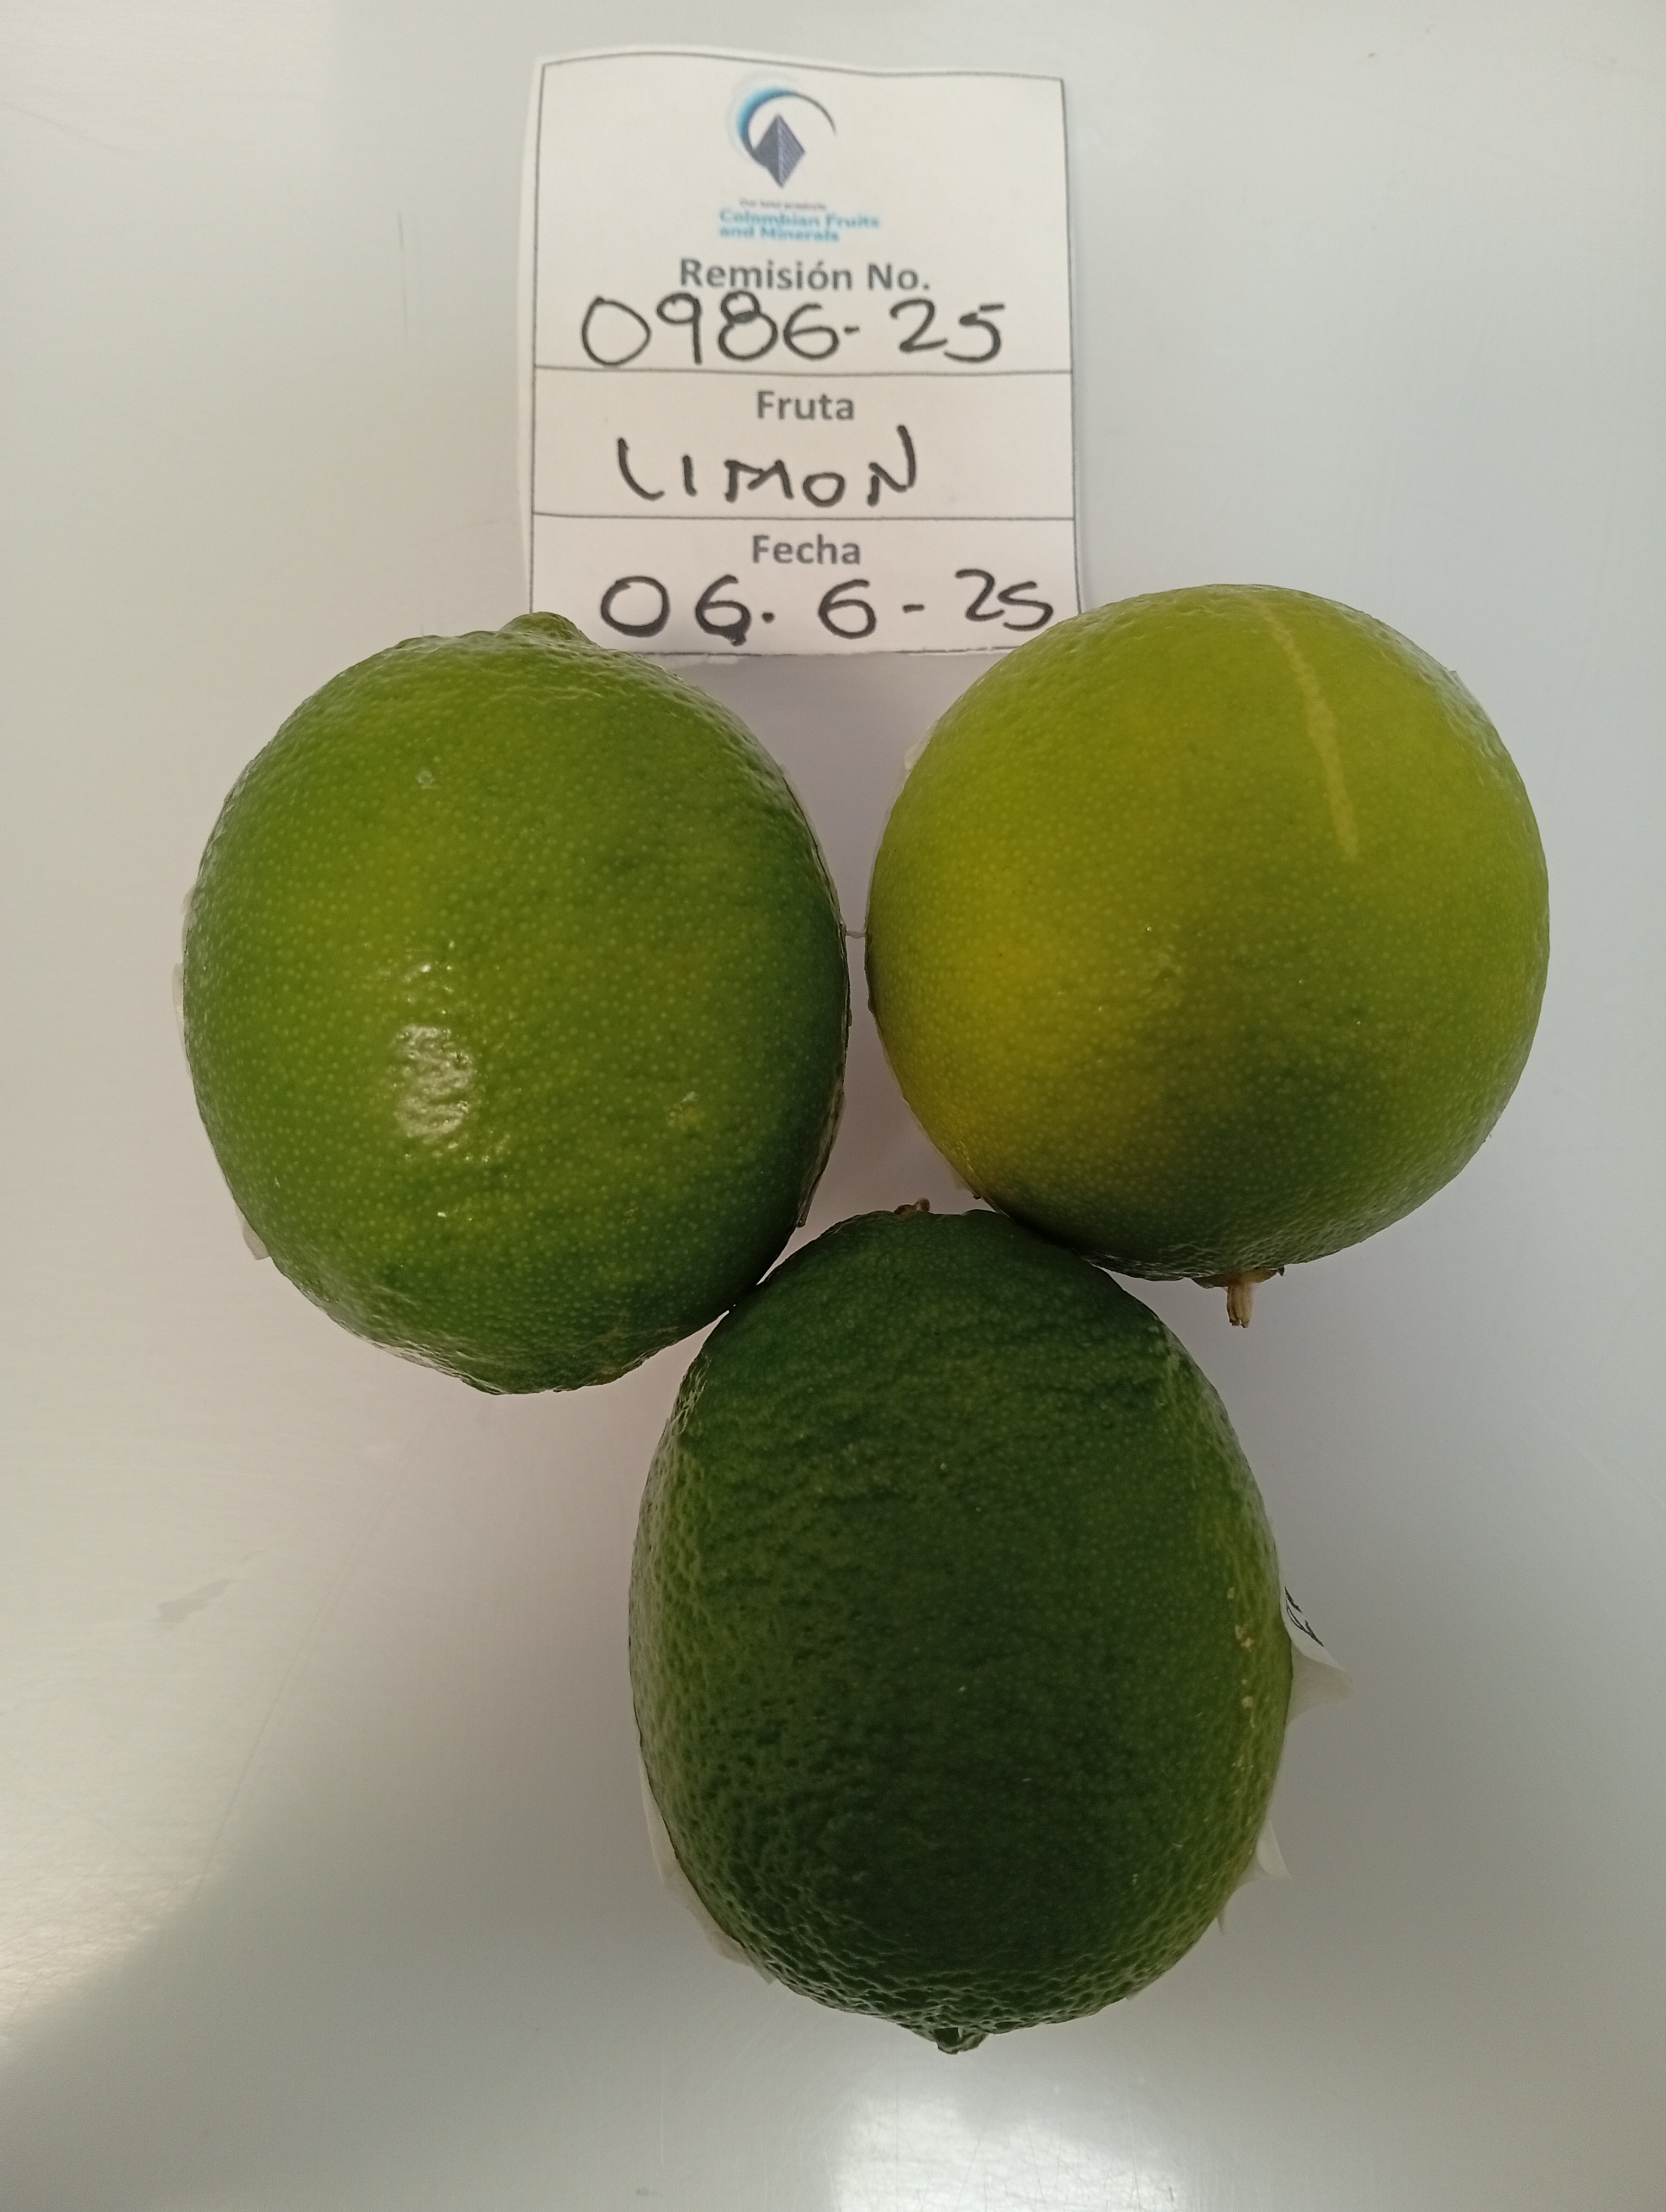 Colombian Fruits
and Minerals
Remisión No.
0986-25
Fruta
LIMON
Fecha
06.6-25